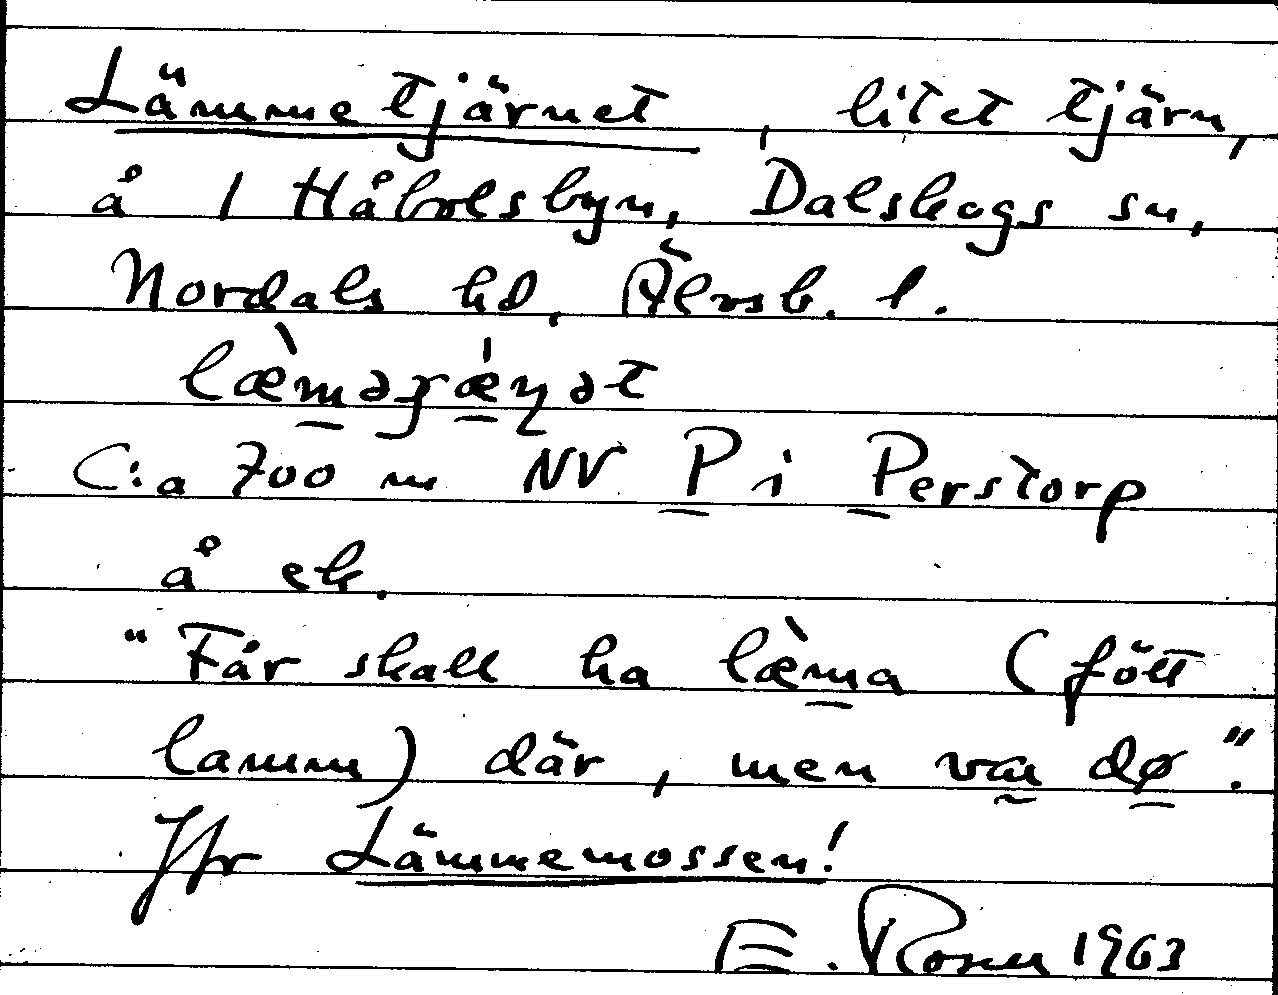 Lämmetjärnet, litet tjärn,
å 1 Håbolsbyn, Dalskogs sn,
Nordals hd, Älvsb. l.
læ̀mǝɟǽɳǝt
C:a 700 m NV P i Perstorp
å ek.
"Får skall ha læ̀ma (fött
lamm) där, men va dø".
Jfr Lämmemossen!
E. Rosén 1963